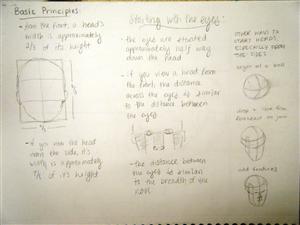 Basic Principles:
- from the front, a head's
width is approximately
2/3 of its height
- if you view the head
from the side, it's
width is approximately
7/8 of it's height
Starting with the eyes:
- the eyes are situated
approximately half way
down the head
- if you view a head from
the front, the distance
across the eyes is similar
to the distance between
the eyes
- the distance between
the eyes is similar
to the breadth of the
nose
OTHER WAYS TO
START HEADS,
ESPECIALLY FROM
THE SIDES
begin with a ball
add features